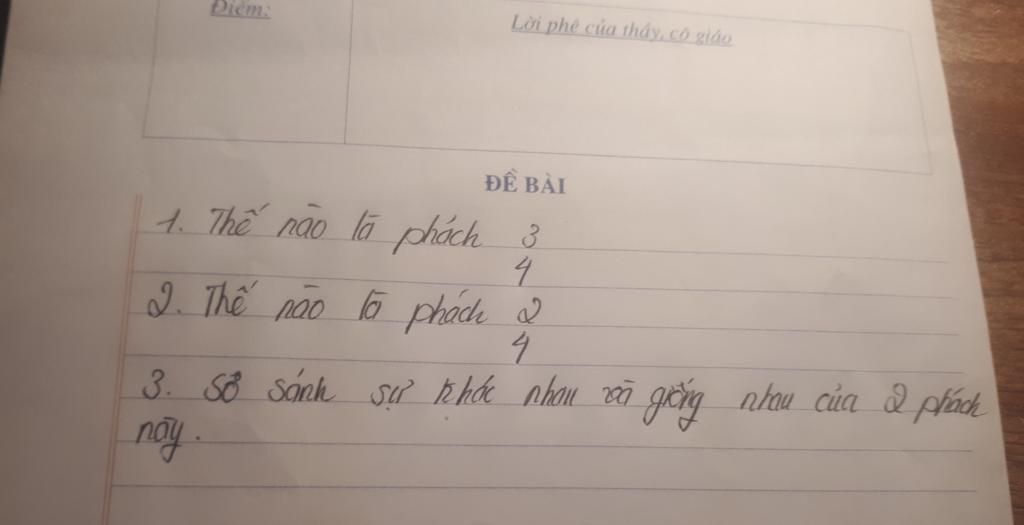 Điểm:
Lời phê của thầy, cô giáo
ĐỀ BÀI
1. Thế nào là phách 3
4
2. Thế nào là phách 2
4
3. Sô sánh sự khác nhau và giống nhau của 2 phách
này.